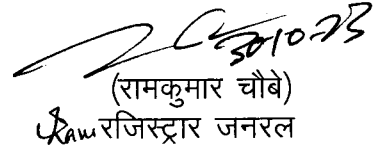 30-10-23
(रामकुमार चौबे)
रजिस्ट्रार जनरल